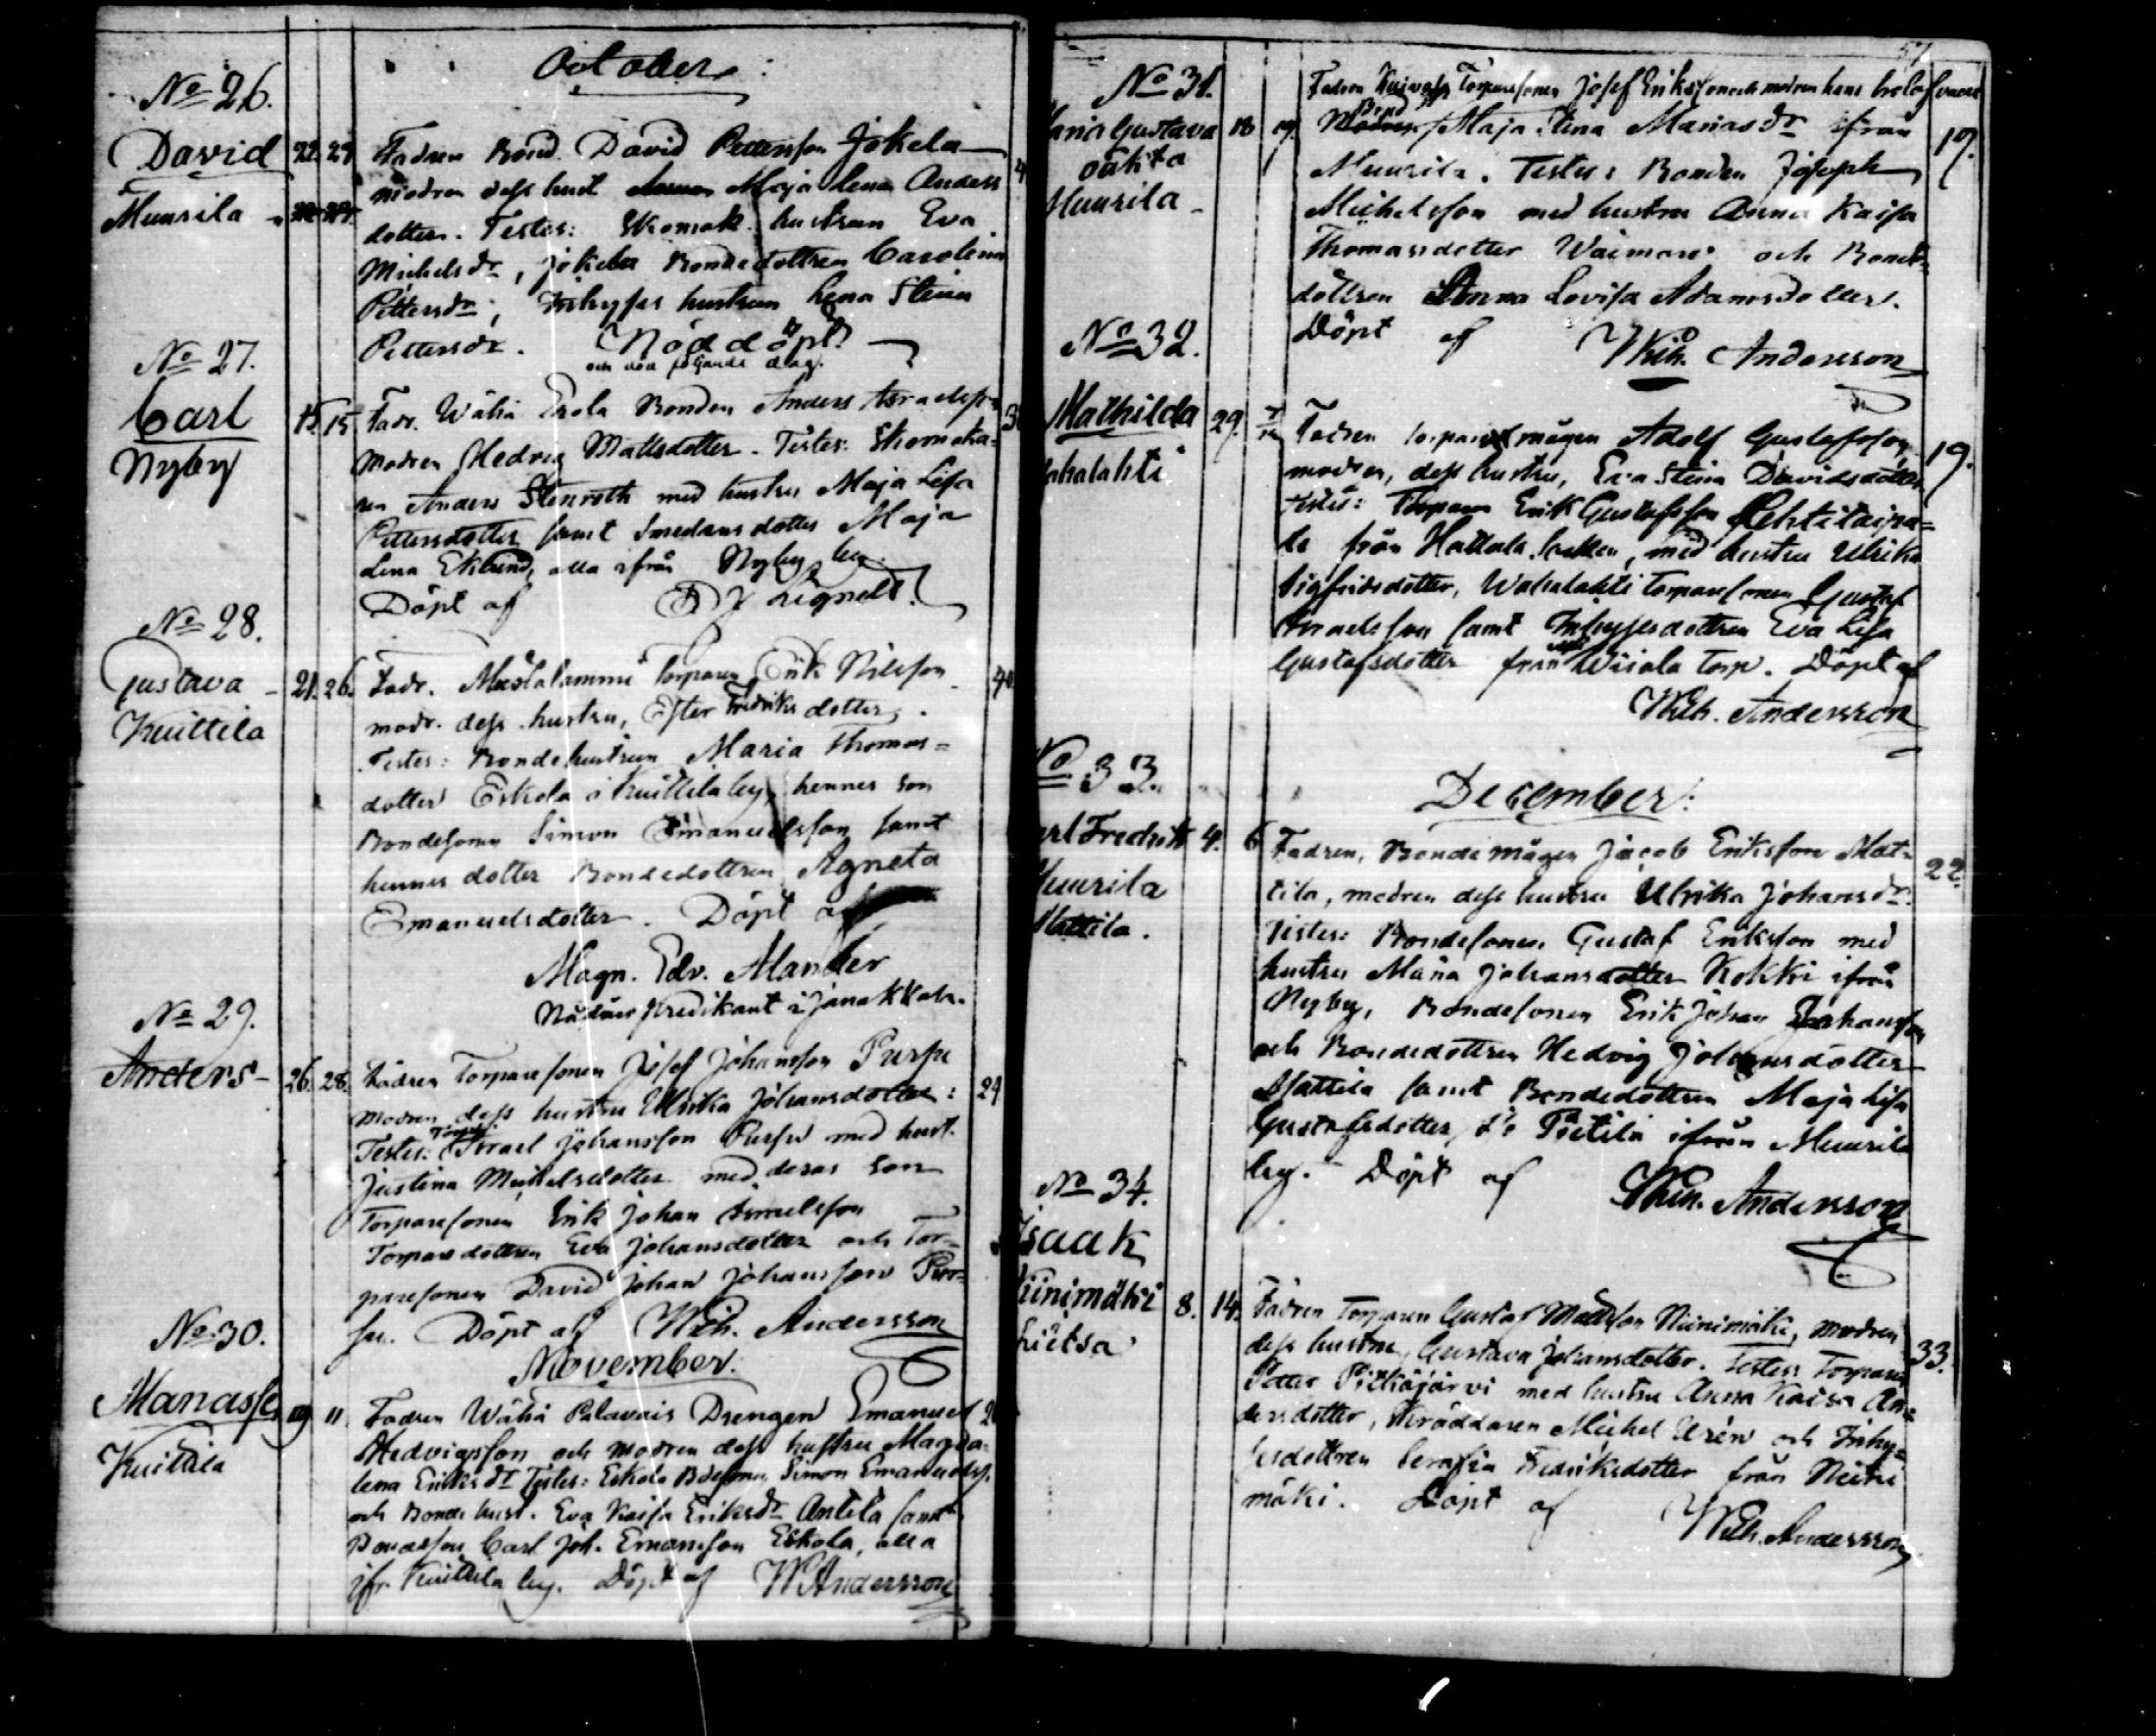 October:
No 26.
David 22. 29 Fadren Bond. David Pettersson Jokela
Muurila modren dess hust Maja Lena Anders
dotter. Testes: Skomak. hustrun Eva
Michelsdr, Jokela Bondedottren Carolina
Pettersdr, Inhyses hustrun Lena Stina
Pettersdr. Nöddöpt
och död följande dag.
No 27.
Carl 15. 15 Fadr. Wähä Erola Bonden Anders
Nyby modren Hedvig Mattsdotter. Testes: Skomaka-
ren Anders Stenroth med hustru Maja Lisa
Pettersdotter samt Smedens dotter Maja
Lena Eklund, alla ifrån Nyby by.
Döpt af Lignell.
No 28.
Gustava 21. 26. Fadr. Mustalammi Torparen Erik Nilsson
Kuittila modr. dess hustru, Ester Fredriks dotter.
Testes: Bondehustrun Maria Thomas=
dotter Eskola i Kuittila by, hennes son
Bondesonen Simon Emanuelsson samt
hennes dotter Bondedottren Agneta
Emanuelsdotter. Döpt af
Magn. Edv. Alander
Nådårs Predikant i Janakkala.
No 29.
Anders 26. 28. Fadren Torparesonen Josef Johansson Pursu 24
modren dess hustru Ulrika Johansdotter:
Testes: Israel Johansson Pursu med hust.
Justina Michelsdotter med deras son
Torparesonen Erik Johan Israelsson
Torparedottren Eva Johansdotter och Tor-
paresonen David Johan Johansson Pur-
su. Döpt af Wilh. Andersson
November.
No 30.
Manasse 11. Fadren Wähä Palavais Drengen Emanuel
Kuittila Hedvigsson och modren dess hustru Magda-
lena Eriksdr Testes: Eskola Bdesonen Simon Emanuelss.
och Bonde hust. Eva Kaisa Eriksdr Antila samt
Bondeson Carl Joh. Emanson Eskola, alla
ifr. Kuittila by. Döpt af W Andersson
57
No 31. Fadren Torparesonen Josef Eriksson och modren hans
Maria Gustava 18 19. Maja Stina Mariasdr ifrån 19.
Muurila Muurila. Testes: Bonden Joseph
Michelsson med hustru Anna Kaisa
Thomasdotter Waimaro och Bonde-
dottren Anna Lovisa Adamsdotter.
Döpt af Wilh. Andersson
No 32.
Mathilda 29. Fadren torparemågen Adolf Gustafsson, 19.
modren, dess hustru, Eva Stina Davidsdotter
testes: Torparen Erik Gustafsson Lehtitaipa=
le från Hattula Socken, med hustru Ulrika
Sigfridsdotter, Wahalahti torparesonen Gustaf
Israelsson samt Inhysesdottren Eva Lisa
Gustafsdotter från Wiiala torp. Döpt af
Wilh. Andersson
December:
No 33.
Carl Fredrik 4. 6 Fadren, Bondemågen Jacob Eriksson Mat- 22.
Muurila tila, modren dess hustru Ulrika Johansdr.
Mattila. Testes: Bondesonen Gustaf Eriksson med
hustru Maria Johansdotter Kokki ifrån
Nyby, Bondesonen Erik Johan Johansson
och Bondedottren Hedvig Johansdotter
Mattila samt Bondedottren Maja Lisa
Gustafsdotter, Pietilä ifrån Muurila
by. Döpt af Wilh. Andersson
No 34.
Isaak
Niinimäki 8. 14. Fadren Torparen Gustaf Mattsson Niinimäki, modren 33.
dess hustru Gustava Johansdotter. Testes: Torparen
Pitkäjärvi med hustru Anna Kaisa An=
dersdotter, Skräddaren Michel Urén och Inhy=
sesdottren Serafia Fredriksdotter från Niini
mäki. Döpt af Wilh. Andersson